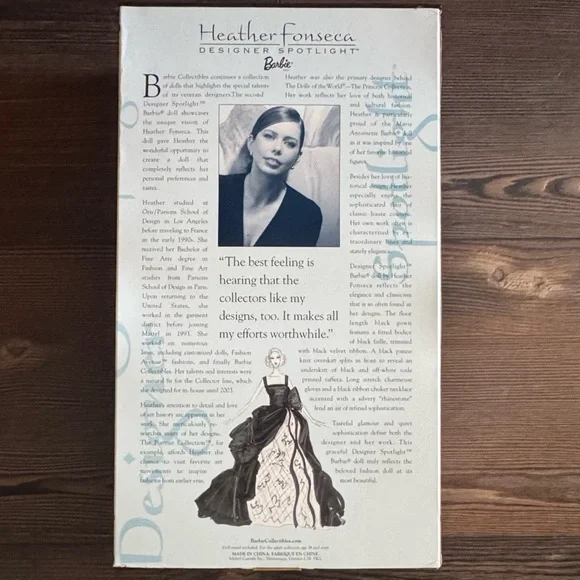 Heather Fonseca
DESIGNER SPOTLIGHT™
Barbie
Barbie Collectibles continues a collection
of dolls that highlights the special talents
of its veteran designers. The second
Designer Spotlight™
Barbie® doll showcases
the unique vision of
Heather Fonseca. This
doll gave Heather the
wonderful opportunity to
create a doll that
completely reflects her
personal preferences and
tastes.
Heather studied at
Otis/Parsons School of
Design in Los Angeles
before traveling to France
in the early 1990s. She
received her Bachelor of
Fine Arts degree in
Fashion and Fine Art
studies from Parsons
School of Design in Paris.
Upon returning to the
United States, she
worked in the garment
district before joining
Mattel in 1993. She
worked on numerous
lines, including customized dolls, Fashion
Avenue™ fashions, and finally Barbie
Collectibles. Her talents and interests were
a natural fit for the Collector line, which
she designed for in-house until 2003.
Heather's attention to detail and love
of art history are apparent in her
work. She meticulously re-
searches many of her designs.
The Portrait Collection™, for
example, affords Heather the
chance to visit favorite art
movements to inspire
fashions from earlier eras.
"The best feeling is
hearing that the
collectors like my
designs, too. It makes all
my efforts worthwhile."
Heather was also the primary designer behind
The Dolls of the World®—The Princess Collection.
Her work reflects her love of both historical
and cultural fashion.
Heather is particularly
proud of the Marie
Antoinette Barbie® doll
as it was inspired by one
of her favorite historical
figures.
Besides her love of his-
torical design, Heather
especially enjoys the
sophisticated flair of
classic haute couture.
Her own work often is
characterized by ex-
traordinary lines and
stately elegance.
Designer Spotlight™
Barbie® doll by Heather
Fonseca reflects the
elegance and classicism
that is so often found in
her designs. The floor
length black gown
features a fitted bodice
of black faille, trimmed
with black velvet ribbon. A black panne
knit overskirt splits in front to reveal an
underskirt of black and off-white toile
printed taffeta. Long stretch charmeuse
gloves and a black ribbon choker necklace
accented with a silvery "rhinestone"
lend an air of refined sophistication.
Tasteful glamour and quiet
sophistication define both the
designer and her work. This
graceful Designer Spotlight™
Barbie® doll truly reflects the
beloved fashion doll at its
most beautiful.
BarbieCollectibles.com
Doll cannot stand alone. For the adult collector, age 14 and over.
MADE IN CHINA. FABRIQUÉ EN CHINE.